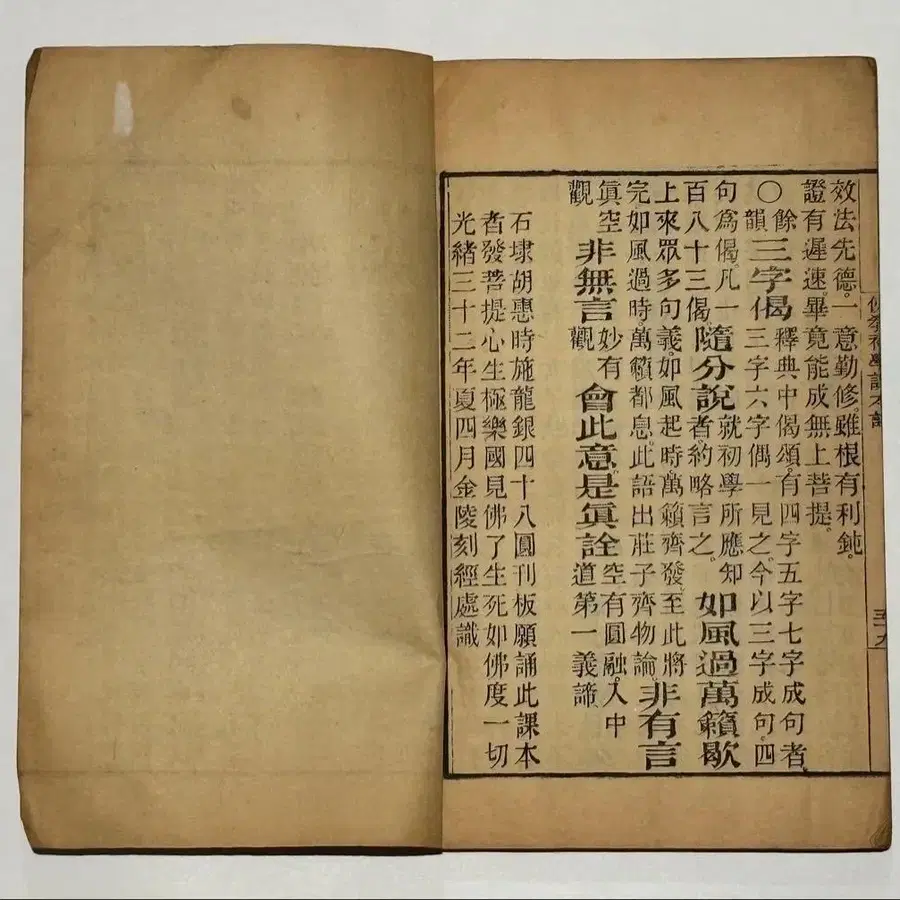 效法先德。一意勤修。雖根有利鈍。
證有遲速。畢竟能成無上菩提。
○餘韻三字偈釋典中偈頌。有四字五字七字成句者三字六字偶一見之。今以三字成句。四
句爲偈。凡一百八十三偈。隨分說就初學所應知者。約略言之。如風過萬籟歇
上來眾多句義。如風起時。萬籟齊發。至此將完。如風過時。萬籟都息。此語出莊子齊物論。非有言
眞空觀非無言妙有觀會此意是眞詮空有圓融。入中道第一義諦
石埭胡惠時施龍銀四十八圓刊板願誦此課本
者發菩提心生極樂國見佛了生死如佛度一切
光緒三十二年夏四月金陵刻經處識